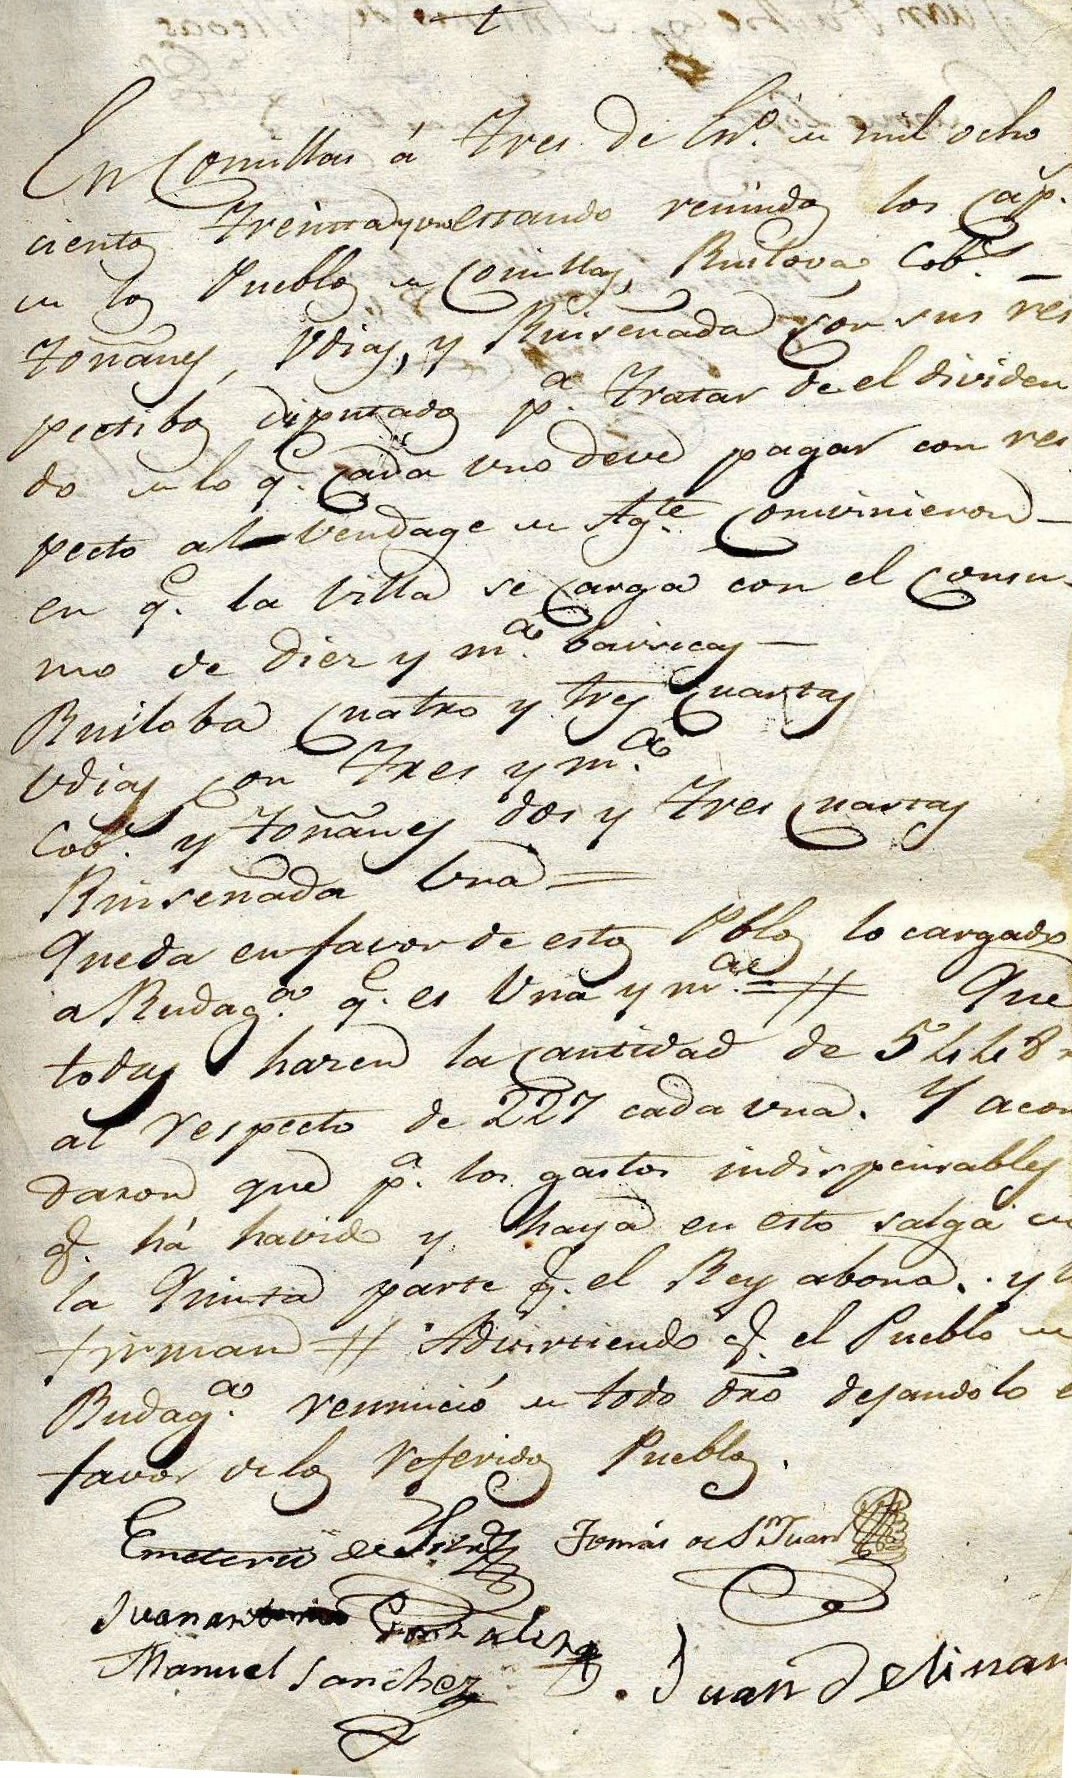 En Comillas á tres de En.º de mil ocho
cientos treinta y un estando reunidos los Cap.
de los Pueblos de Comillas, Ruilova, Cob.s
Toñanes, Udias, y Ruiseñada con sus res
pectibos diputados p.a tratar de el dividen
do de lo q.e Cada uno deve pagar con res
pecto al vendage de Ag.te Convinieron
en q.e la Villa se Carga con el Consu-
mo de diez y m.a barricas
Ruiloba Cuatro y tres Cuartas
Udias con tres y m.a
Cob.s y Toñanes dos y tres Cuartas
Ruiseñada Una =
Queda en favor de estos Pblos lo cargado
a Rudag.a q.e es Una y m.a =//= Que
todas hacen la Cantidad de 5448 r
al respecto de 227 cada una. Y acor
daron que p.a los gastos indispensables
q. há havido y haya en esto salga de
la Quinta parte q. el Rey abona. y lo
firman // Advirtiendo q. el Pueblo de
Budag.a renunció de todo dro dejandolo e
favor de los referidos Pueblos.
Emeterio de Tomás de S. Juan
Juan antonio Gonzalez
Manuel Sanchez Juan de linar